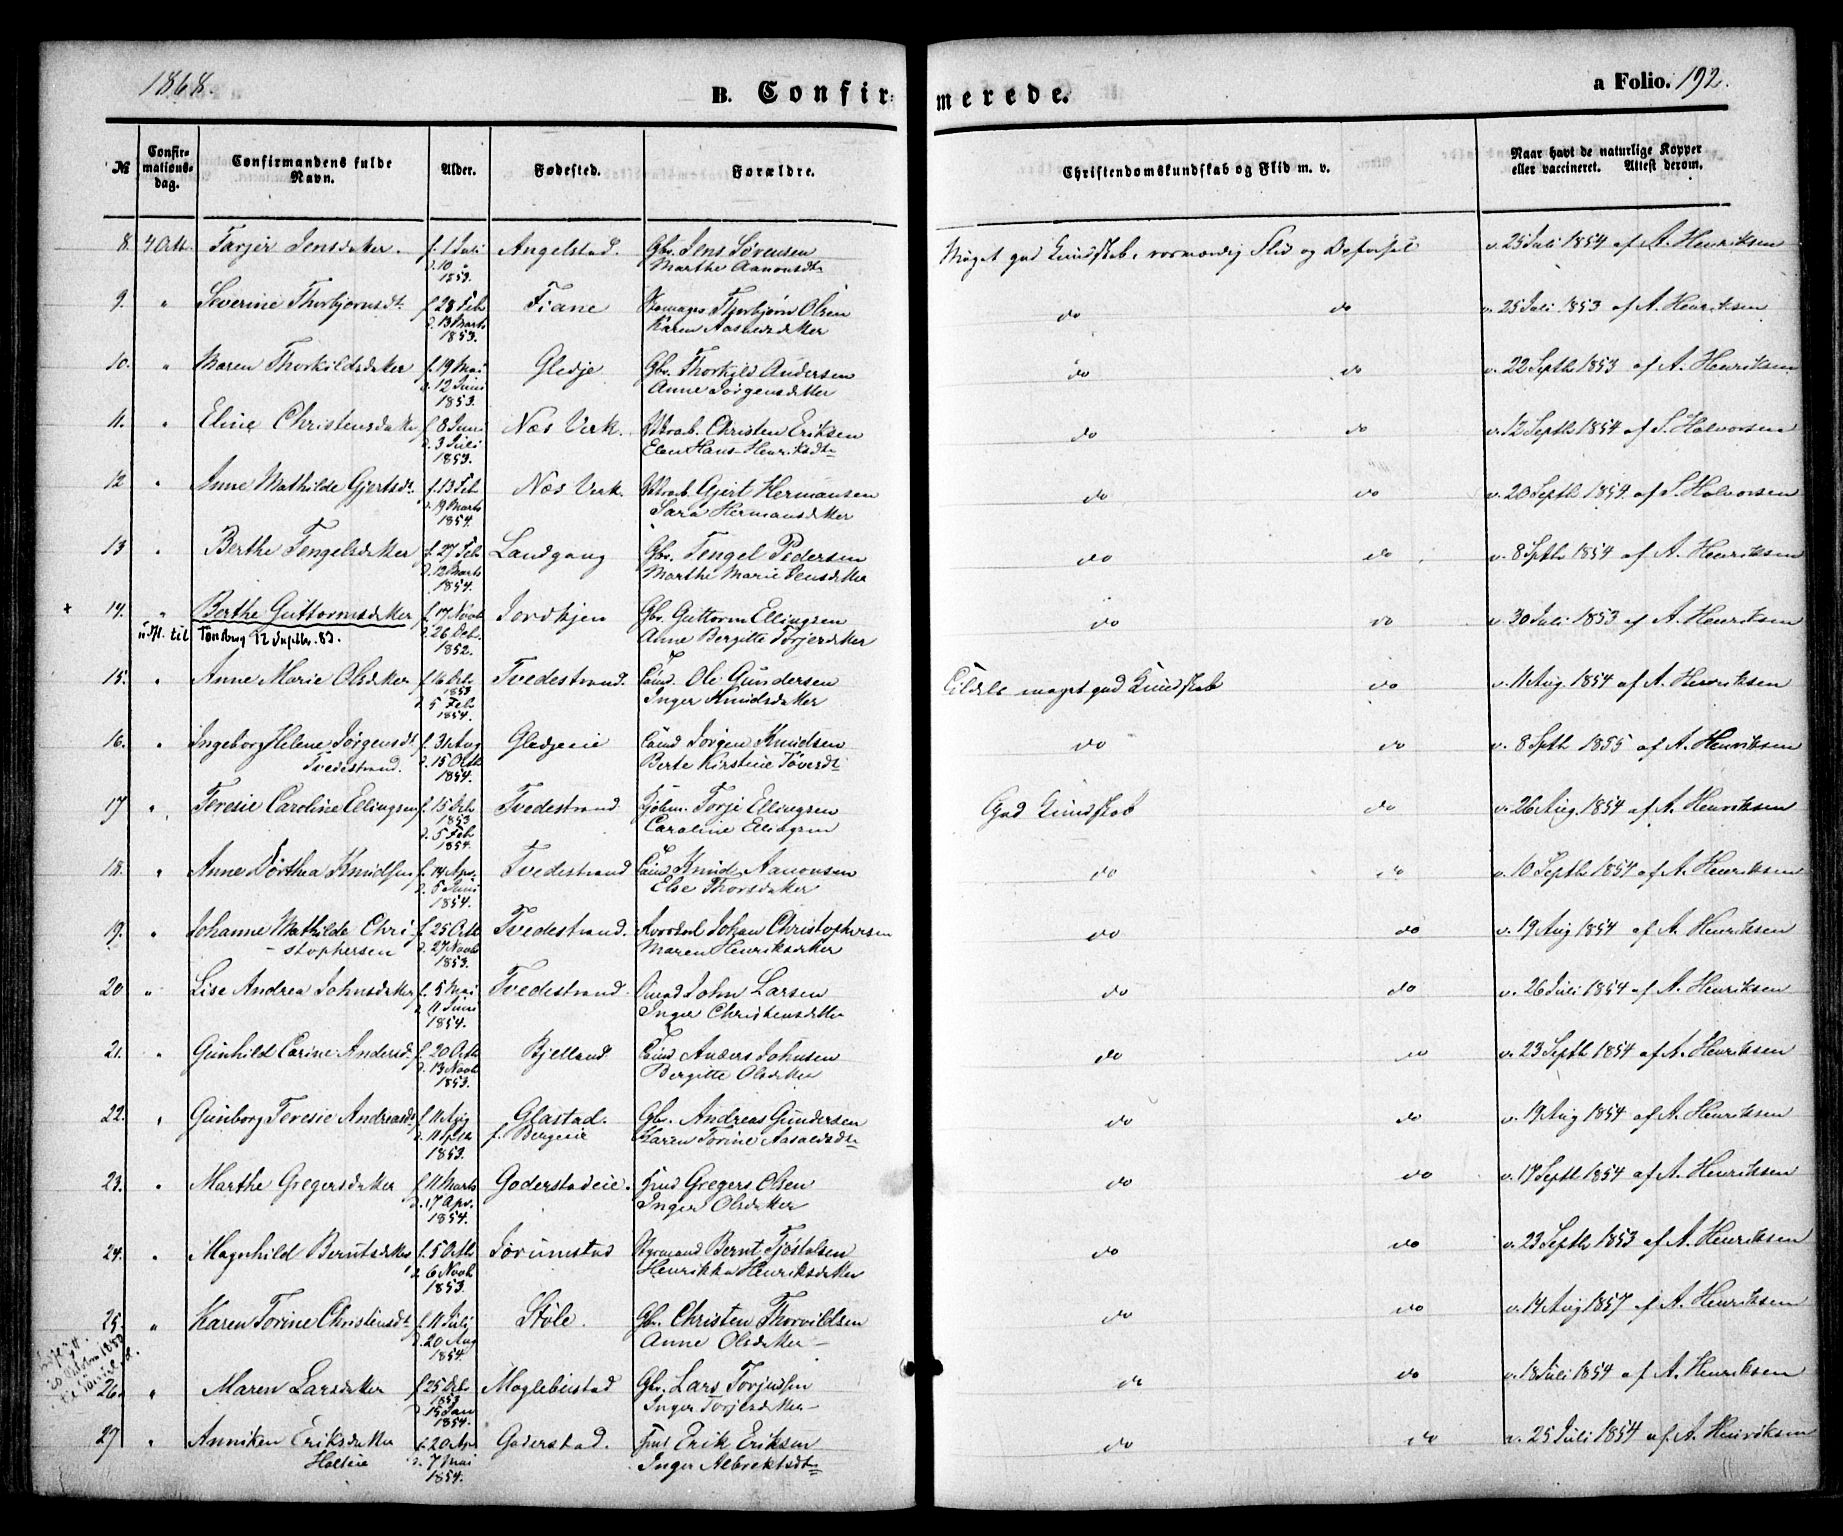 1868.
B. Confirmerede.
a Folio. 192.
№ Confirmationsdag. Confirmandens fulde Navn. Alder. Fødested. Forældre. Christendomskundskab og Flid m. v. Naar havt de naturlige Kopper eller vaccineret. Attest derom.
8. 4 Oct. Tarjer Jensdatter. f. 1 Juli Angelstad. Gbr. Jens Sørensen Meget god Kundskab, Flid og v. 25 Juli 1854 af A. Henriksen
d. 10 " Marthe Aanonsdt
1853.
9. " Severine Thorbjørnsdt. f. 28 Feb Fiane Thorbjørn Olsen do do v. 25 Juli 1853 af A. Henriksen
d. 13 Marts Karen
1853.
10. " Maren Thorkildsdatter f. 19 Mai Gledje Gbr. Thorkild Andersen do do v. 22 Septb 1853 af A. Henriksen
d. 12 Juni Anne Jørgensdatter
1853.
11. " Eline Christensdatter f. 8 Juni Næs Verk. Christen Eriksen do do v. 12 Septb 1854 af S. Halvorsen
d. 3 Juli Elen Hans Henriksdt
1853.
12 " Anne Mathilde Gjertsdt. f. 13 Feb Næs Verk. Gjert Hermansen do do v. 20 Septb 1859 af S. Halvorsen
d. 19 Marts Sara Hermansdatter
1854.
13 " Berthe Tengelsdatter f. 27 Feb Landgang Gbr. Tengel Pedersen do do v. 8 Septb 1854 af A. Henriksen
d. 12 Marts Marthe Marie Jensdatter
1854.
+ 14. " Berthe Guttormsdatter f. 17 Novb Jordkjen Gbr. Guttorm Ellingsen do do v. 30 Juli 1853 af A. Henriksen
til Tønsberg 12 Septbr. 83. d. 26 Dec. Anne Bergitte Torjersdatter
1852.
15. " Anne Marie Olsdatter f. 16 Dec. Tvedestrand. Ole Gundersen meget god Kundskab do v. 11 Aug 1854 af A. Henriksen
1853 Inger Knudsdatter
d. 5 Feb
1854.
16. " Ingeborg Helene Jørgensdt f. 31 Aug Gledjeeie Jørgen Knudsen do do v. 8 Septb 1855 af A. Henriksen
Tvedestrand. d. 15 Octb Berte Kirstine
1854.
17 " Teresie Caroline Ellingsen f. 15 Dec Tvedestrand Torje Ellingsen God Kundskab do v. 26 Aug. 1854 af A. Henriksen
1853 Caroline Ellingsen
d. 5 Feb
1854.
18. " Anne Dorthea Knudsen f. 14 Apr. Tvedestrand Knud Aanonsen do do v. 10 Septb 1854 af A. Henriksen
d. 5 Juni Else Thorsdatter
1854.
19. " Johanne Mathilde Chri f. 25 Octb Tvedestrand. Johan Christophersen do do v. 19 Aug 1854 af A. Henriksen
- stophersen d. 27 Novb Maren Henriksdatter
1853.
20 " Lise Andrea Johnsdatter f. 5 Mai Tvedestrand. John Larsen do do v. 26 Juli 1854 af A. Henriksen
d. 11 Juni Inger Christensdatter
1854.
21. " Gunhild Carine Andersd. f. 20 Octb Bjelland Anders Johnsen do do v. 23 Septb 1854 af A. Henriksen
d. 13 Novb Bergitte Olsdatter
1853.
22. " Gunborg Teresie Andreasdt f. 11 Aug Glastad. Gbr. Andreas Gundersen do do v. 19 Aug 1854 af A. Henriksen
d. 11 Septb f. Bergeeie Karen Torine Aasoldsdt
1853.
23. " Marthe Gregersdatter f. 11 Marts Goderstadeie. Gregers Olsen do do v. 17 Septb 1854 af A. Henriksen
d. 17 Apr. Inger Olsdatter
1854.
24. " Magnhild Berntsdatter f. 5 Octb Jorunstad Styrmand Bernt Tjostolsen do do v. 23 Septb 1853 af A. Henriksen
d. 6 Novb Henrikka Henriksdatter
1853.
25. " Karen Torine Christensdt f. 11 Juli Støle. Gbr. Christen Thorvildsen do do v. 14 Aug 1857 af A. Henriksen
d. 20 Aug Anne Olsdatter
1854.
26. " Maren Larsdatter f. 25 Dec Gbr. Lars Torjussen do do v. 18 Juli 1854 af A. Henriksen
1853 Inger Torjersdatter
d. 15 Jan
1854.
27 " Anniken Eriksdatter f. 20 Apr Goderstad. Erik Eriksen do do v. 25 Juli 1854 af A. Henriksen
Holteie d. 7 Mai Inger Albrektsdt
1854.